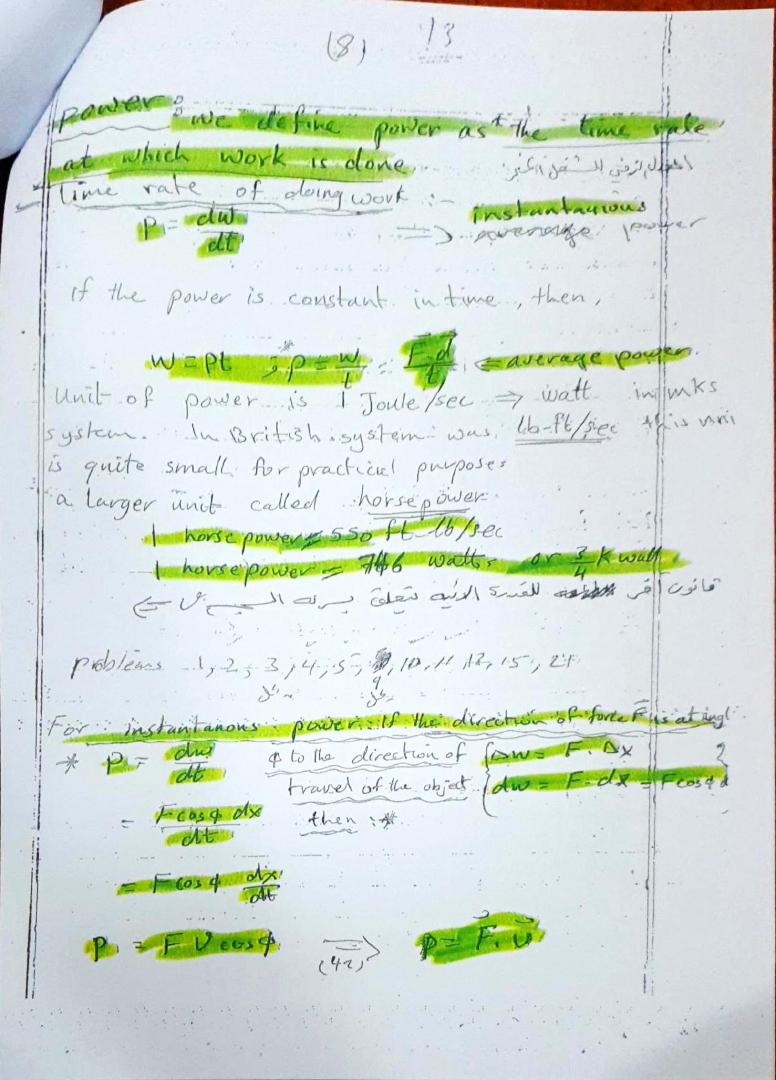 (8) 13
power: we define power as "the time rate
at which work is done.
time rate of doing work :- instantanious
P = dw/dt => average power
if the power is constant in time, then,
W = Pt ; * P = W/t = F.d/t <= average power
Unit of power is 1 Joule/sec => watt in mks
system. In British system was lb-ft/sec this
is quite small for practical purposes
a larger unit called horsepower.
1 horsepower = 550 ft lb/sec
1 horsepower = 746 watts or 3/4 K watt
قانون آخر للقدرة الانيه تتعلق بسرعة الجسم
problems 1, 2, 3, 4, 5, 9, 10, 11, 12, 15, 21
For instantanous power: If the direction of force F is at angl
* P = dw/dt φ to the direction of {Δw = F. Δx}
travel of the object. {dw = F. dx = F cos φ d
= F cos φ dx/dt then :*
= F cos φ dx/dt
P = F V cos φ => P = F. v
(42)